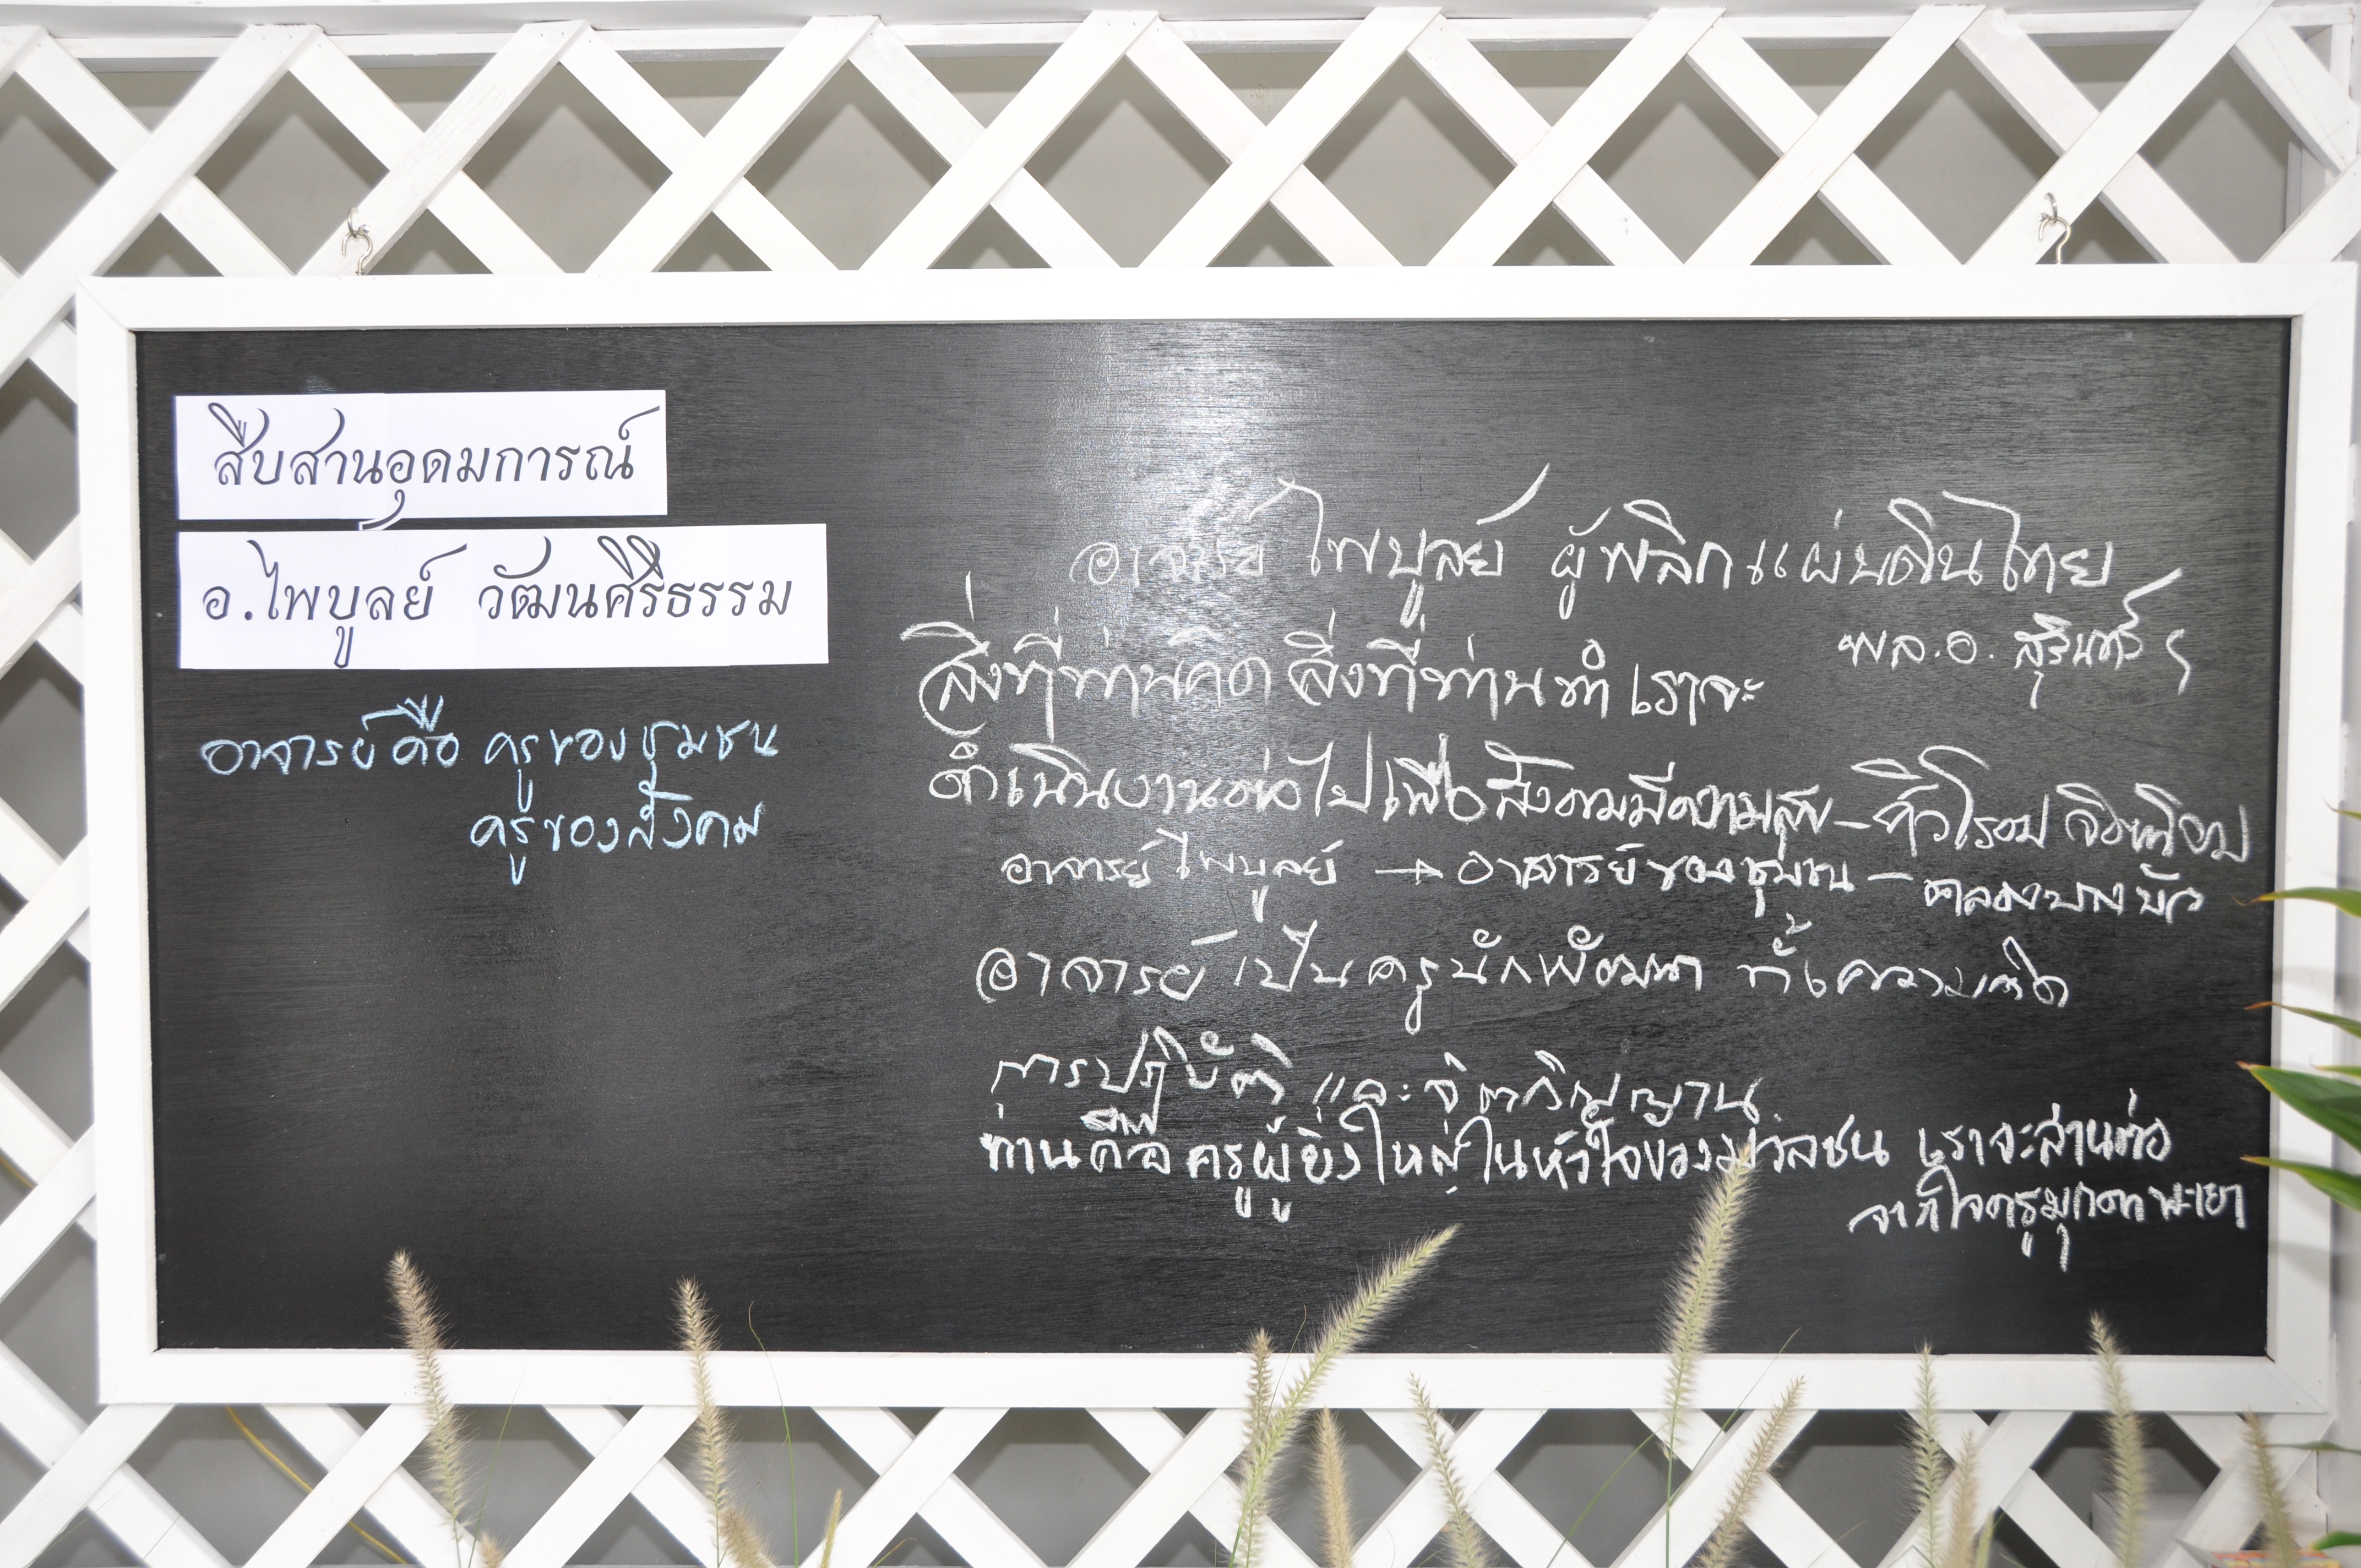 สืบสานอุดมการณ์
อ.ไพบูลย์ วัฒนศิริธรรม
อาจารย์คือ ครูของชุมชน
ครูของสังคม
อาจารย์ ไพบูลย์ ผู้พลิกแผ่นดินไทย
พล.อ. สุรินทร์ฯ
สิ่งที่ท่านคิด สิ่งที่ท่านทำ เราจะ
ดำเนินงานต่อไปเพื่อสังคมมีความสุข –
อาจารย์ไพบูลย์ → อาจารย์ของชุมชน – คลองบางบัว
อาจารย์ เป็นครูนักพัฒนา ทั้งความคิด
การปฏิบัติ และจิตวิญญาณ
ท่านคือ ครูผู้ยิ่งใหญ่ในหัวใจของมวลชน เราจะสานต่อ
จากใจครูมุกดา พะเยา